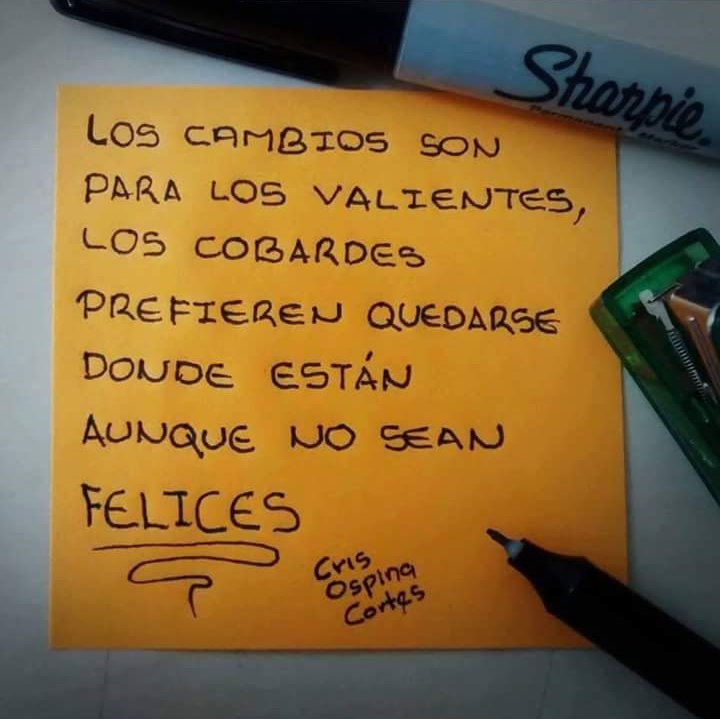 Sharpie
Permanent Marker
LOS CAMBIOS SON
PARA LOS VALIENTES,
LOS COBARDES
PREFIEREN QUEDARSE
DONDE ESTÁN
AUNQUE NO SEAN
FELICES
Cris
Ospina
Cortes